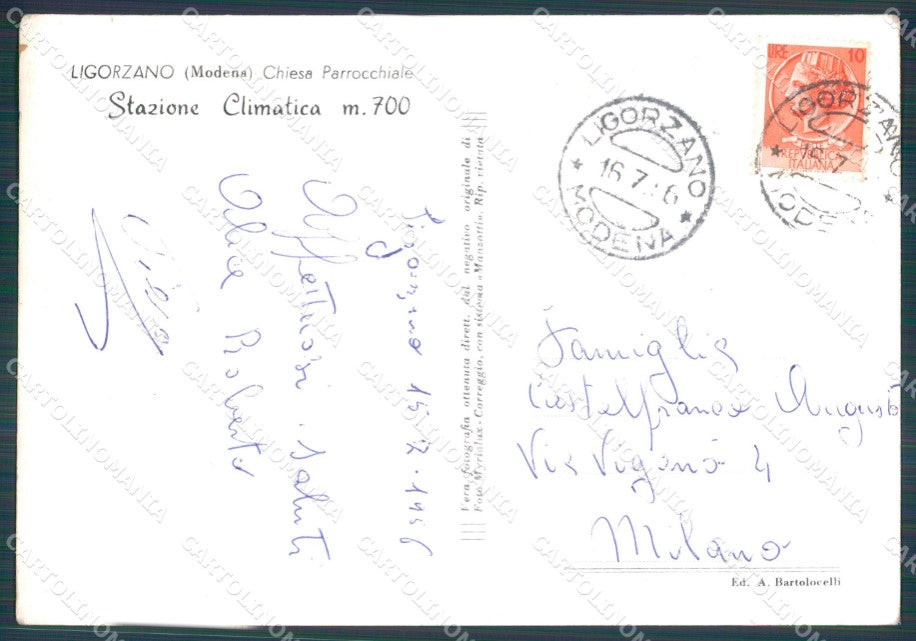 LIGORZANO (Modena) Chiesa Parrocchiale
Stazione Climatica m. 700
Ligorzano 15.7.1956
Affettuosi saluti
Roberto
Vera fotografia ottenuta dirett. dal negativo originale di
Foto Myrialux-Correggio, con sistema «Manzotti». Rip. vietata
LIRE 10
REPUBBLICA
ITALIANA
LIGORZANO
16.7.
MODENA
LIGORZANO
16.7
MODE
Famiglia
Castelfranco Augusto
Via Viganò 4
Milano
Ed. A. Bartolocelli
CARTOLINOMANIA